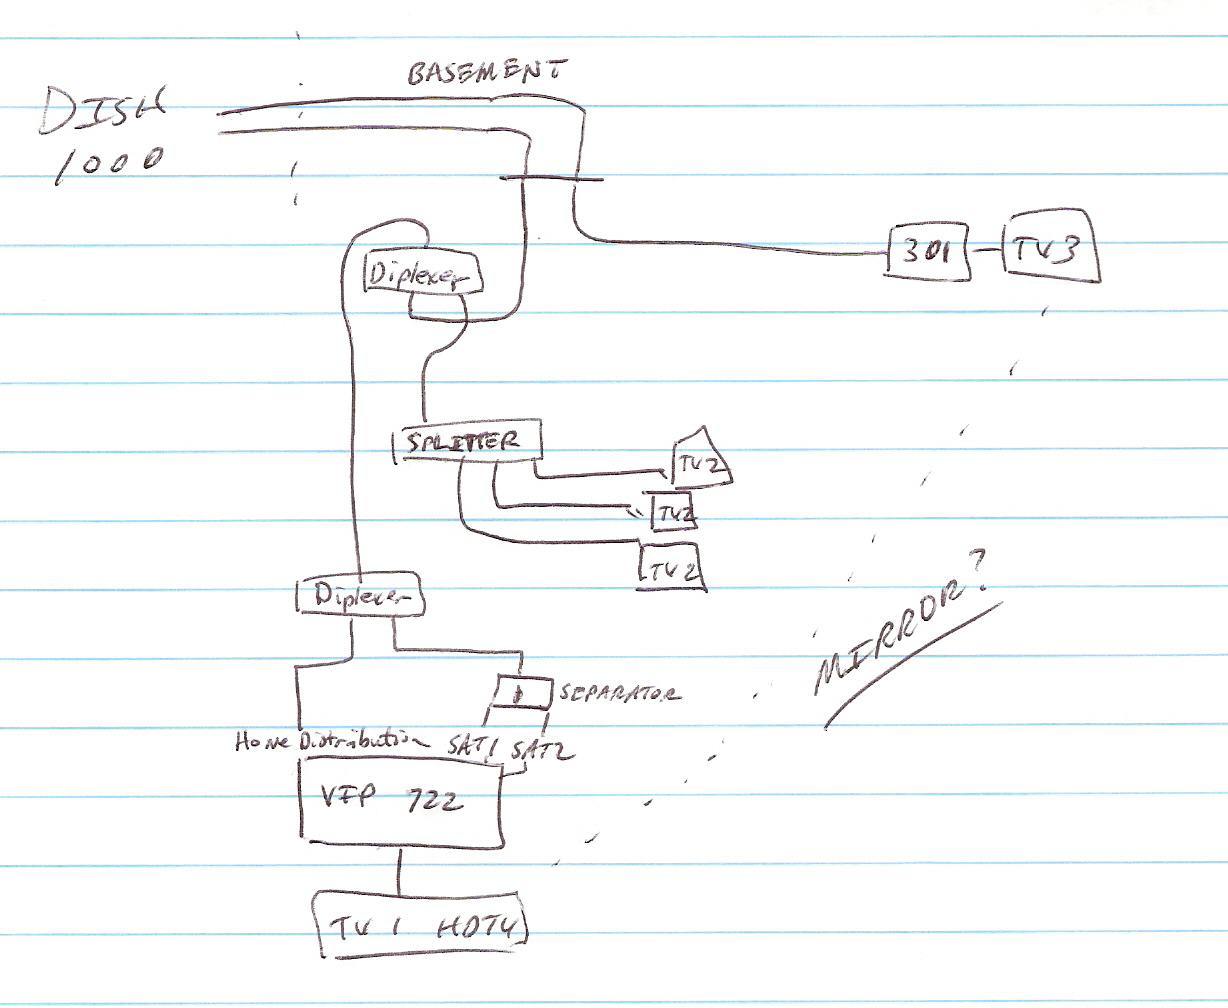 BASEMENT
DISH
1000
301
TV3
Diplexer
SPLITTER
TV2
TV2
TV2
Diplexer
MIRROR?
SEPARATOR
Home Distribution SAT1 SAT2
VIP 722
TV 1 HDTV